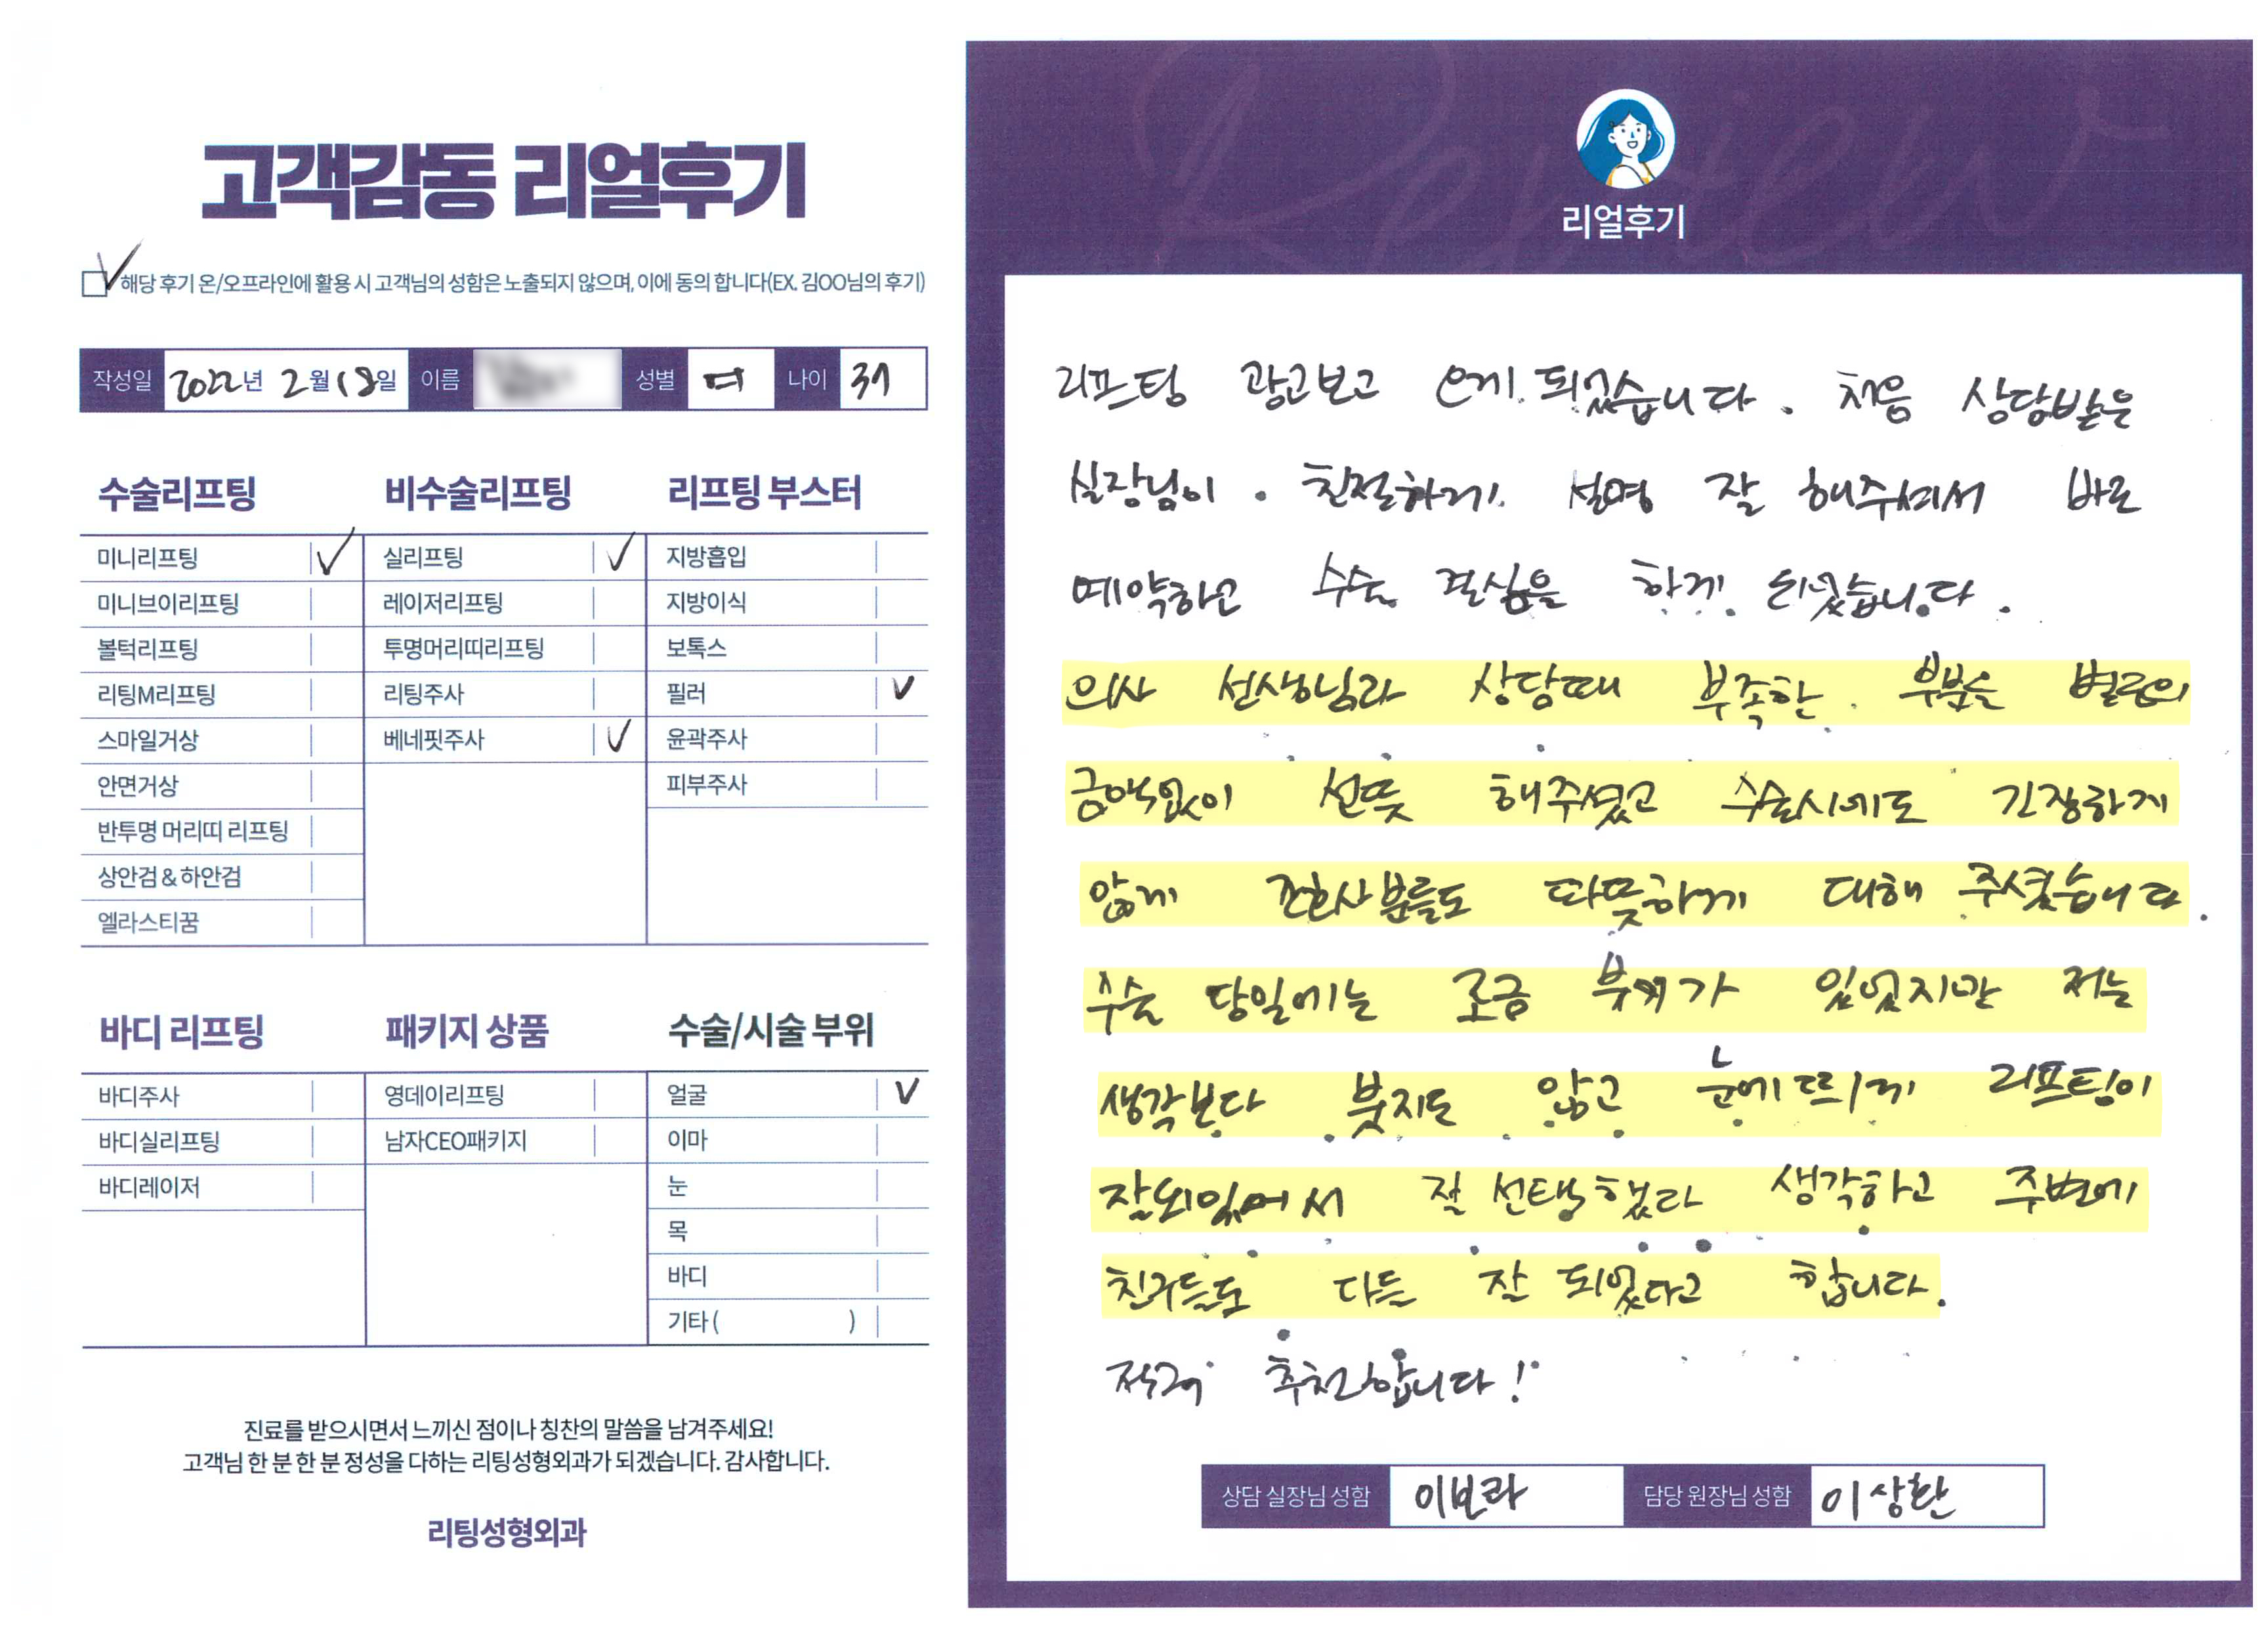 고객감동 리얼후기
해당 후기 온/오프라인에 활용 시 고객님의 성함은 노출되지 않으며, 이에 동의 합니다(EX. 김OO님의 후기)
작성일 2022년 2월 18일 이름 성별 여 나이 37
수술리프팅
미니리프팅
미니브이리프팅
볼턱리프팅
리팅M리프팅
스마일거상
안면거상
반투명 머리띠 리프팅
상안검&하안검
엘라스티꿈
비수술리프팅
실리프팅
레이저리프팅
투명머리띠리프팅
리팅주사
베네핏주사
리프팅 부스터
지방흡입
지방이식
보톡스
필러
윤곽주사
피부주사
바디 리프팅
바디주사
바디실리프팅
바디레이저
패키지 상품
영데이리프팅
남자CEO패키지
수술/시술 부위
얼굴
이마
눈
목
바디
기타 ( )
진료를 받으시면서 느끼신 점이나 칭찬의 말씀을 남겨주세요!
고객님 한 분 한 분 정성을 다하는 리팅성형외과가 되겠습니다. 감사합니다.
리팅성형외과
Review
리얼후기
리프팅 광고보고 오게 되었습니다. 처음 상담받은
실장님이. 친절하게 설명 잘 해주셔서 바로
예약하고 수술 결심을 하게 되었습니다.
의사 선생님과 상담때 부족한 부분을 별도의
금액없이 선뜻 해주셨고 수술시에도 긴장하게
않게 간호사분들도 따뜻하게 대해 주셨습니다.
수술 당일에는 조금 붓기가 있었지만 저는
생각보다 붓지도 않고 눈에띄게 리프팅이
잘되있어서 잘 선택했다 생각하고 주변에
친구들도 다들 잘 되었다고 합니다.
적극 추천합니다!
상담 실장님 성함 이보라 담당 원장님 성함 이상환